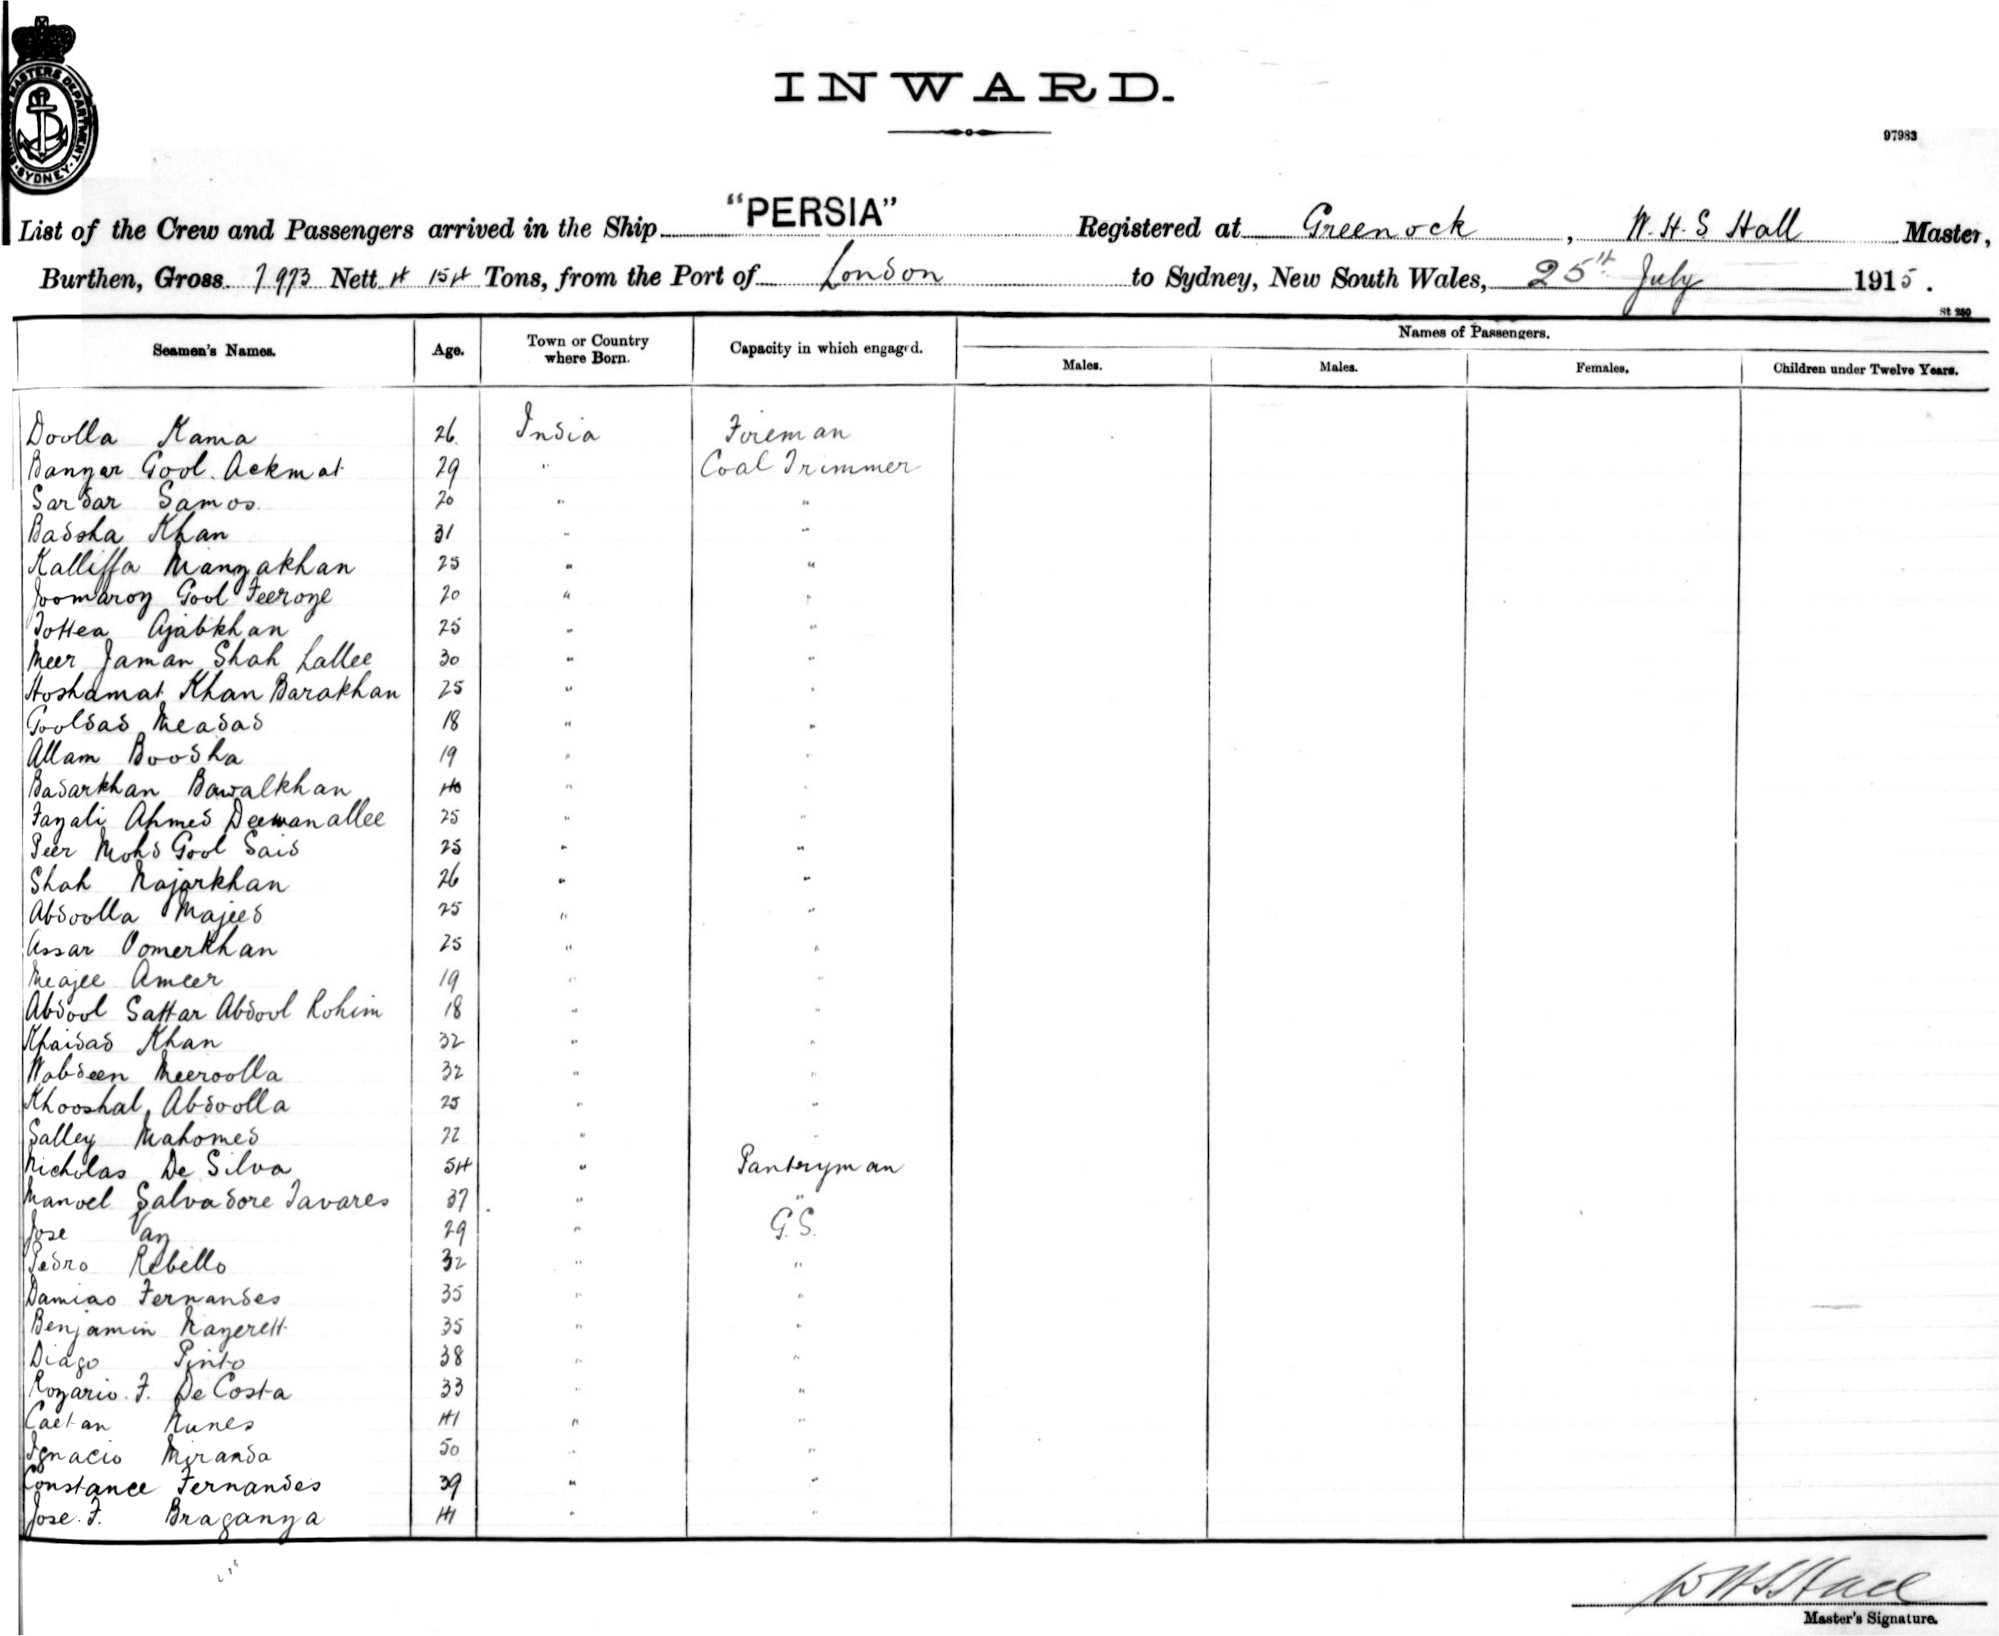 SHIPPING MASTERS DEPARTMENT · SYDNEY ·
INWARD.
97983
List of the Crew and Passengers arrived in the Ship "PERSIA" Registered at Greenock, W. H. S Hall Master,
Burthen, Gross 7973 Nett 4154 Tons, from the Port of London to Sydney, New South Wales, 25th July 1915.
St 250
Seamen's Names. Age. Town or Country where Born. Capacity in which engaged. Names of Passengers.
Males. Males. Females. Children under Twelve Years.
Doolla Kama 26 India Fireman
Banyar Gool. Ackmat 29 " Coal Trimmer
Sardar Samos. 20 " "
Badsha Khan 31 " "
Kalliffa Mianyakhan 25 " "
Joomaroy Gool Feeroze 20 " "
Tottea Ajabkhan 25 " "
Meer Jaman Shah Lallee 30 " "
Hoshamat Khan Barakhan 25 " "
Gooldad Meadad 18 " "
Allam Boodha 19 " "
Badarkhan Bawalkhan 40 " "
Fazali Ahmed Deewanallee 25 " "
Peer Mohd Gool Said 25 " "
Shah Najarkhan 26 " "
Abdoolla Majeed 25 " "
Assar Oomerkhan 25 " "
Meajee Ameer 19 " "
Abdool Sattar Abdool Rohim 18 " "
Khaidad Khan 32 " "
Nabdeen Meeroolla 32 " "
Khooshal Abdoolla 25 " "
Salley Mahomed 22 " "
Nicholas De Silva 54 " Pantryman
Manoel Salvadore Tavares 37 " "
Jose Vaz 29 " G.S.
Pedro Rebello 32 " "
Damiao Fernandes 35 " "
Benjamin Nazerett 35 " "
Diago Pinto 38 " "
Rozario. F. De Costa 33 " "
Caetan Nunes 41 " "
Ignacio Miranda 50 " "
Constance Fernandes 39 " "
Jose. F. Braganza 41 " "
W H S Hall
Master's Signature.